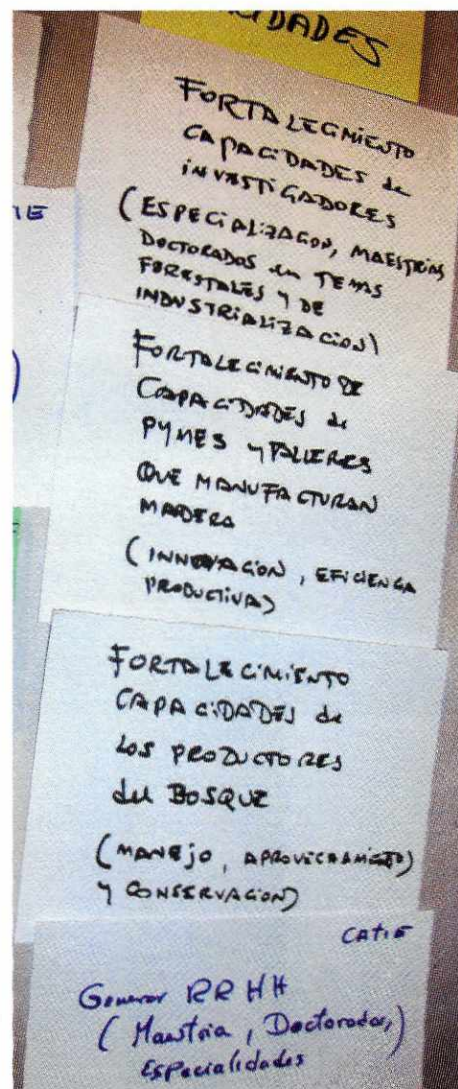 IDADES
FORTALECIMIENTO
CAPACIDADES de
INVESTIGADORES
(ESPECIALIZACION, MAESTRIAS
DOCTORADOS en TEMAS
FORESTALES Y DE
INDUSTRIALIZACION)
FORTALECIMIENTO DE
CAPACIDADES de
PYMES Y TALLERES
QUE MANUFACTURAN
MADERA
(INNOVACION, EFICIENCIA
PRODUCTIVAS)
FORTALECIMIENTO
CAPACIDADES de
LOS PRODUCTORES
del BOSQUE
(MANEJO, APROVECHAMIENTO)
Y CONSERVACION)
CATIE
Generar RRHH
(Maestria, Doctorados,)
Especialidades